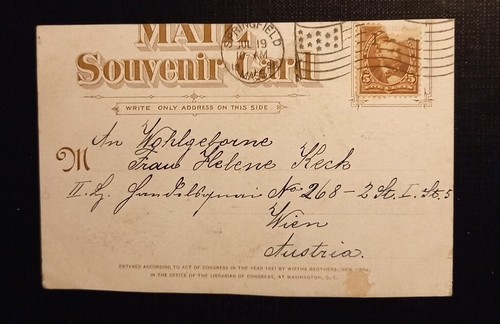 Souvenir Card
SPRINGFIELD
JUL 19
10-AM
MASS
WRITE ONLY ADDRESS ON THIS SIDE
M An Wohlgeborne
Frau Helene Keck
No 268 – 2 St. I. St. 5
Wien
Austria.
ENTERED ACCORDING TO ACT OF CONGRESS IN THE YEAR 1897 BY WIRTHS BROTHERS, NEW YORK,
IN THE OFFICE OF THE LIBRARIAN OF CONGRESS, AT WASHINGTON, D. C.